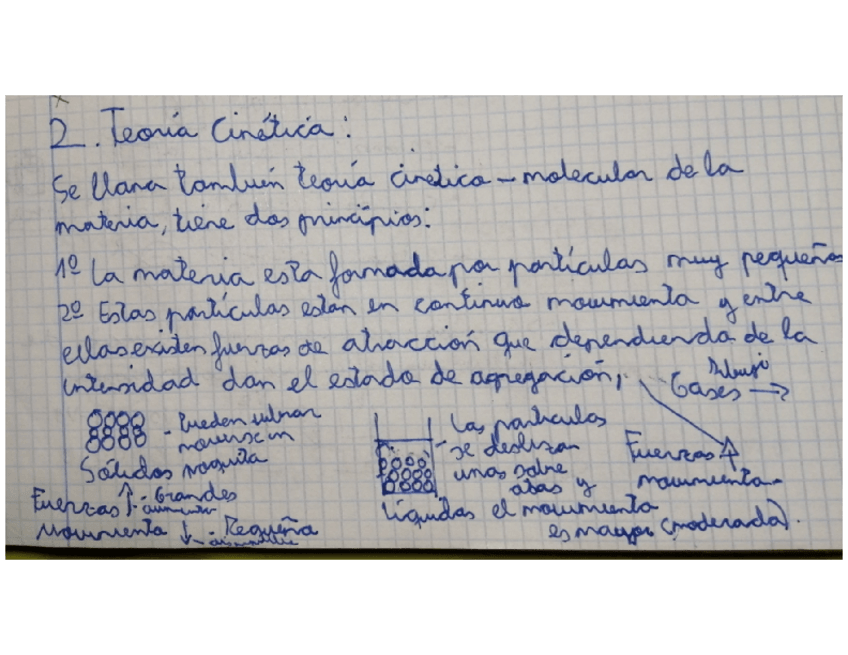 2. Teoría Cinética:
Se llama también teoría cinética-molecular de la
materia, tiene dos principios:
1º La materia esta formada por partículas muy pequeñas
2º Estas partículas estan en continuo movimiento y entre
ellas existen fuerzas de atracción que dependiendo de la
intensidad dan el estado de agregación,
Dibujo
Gases →
- Pueden vibrar
moverse un
poquito
Sólidos
Fuerzas ↑ - Grandes
- aumentar
Movimiento ↓ - Pequeña
- disminuir
- Las partículas
se deslizan
unas sobre
otas y
Líquidos el movimiento
es mayor (moderado).
Fuerzas
movimiento -